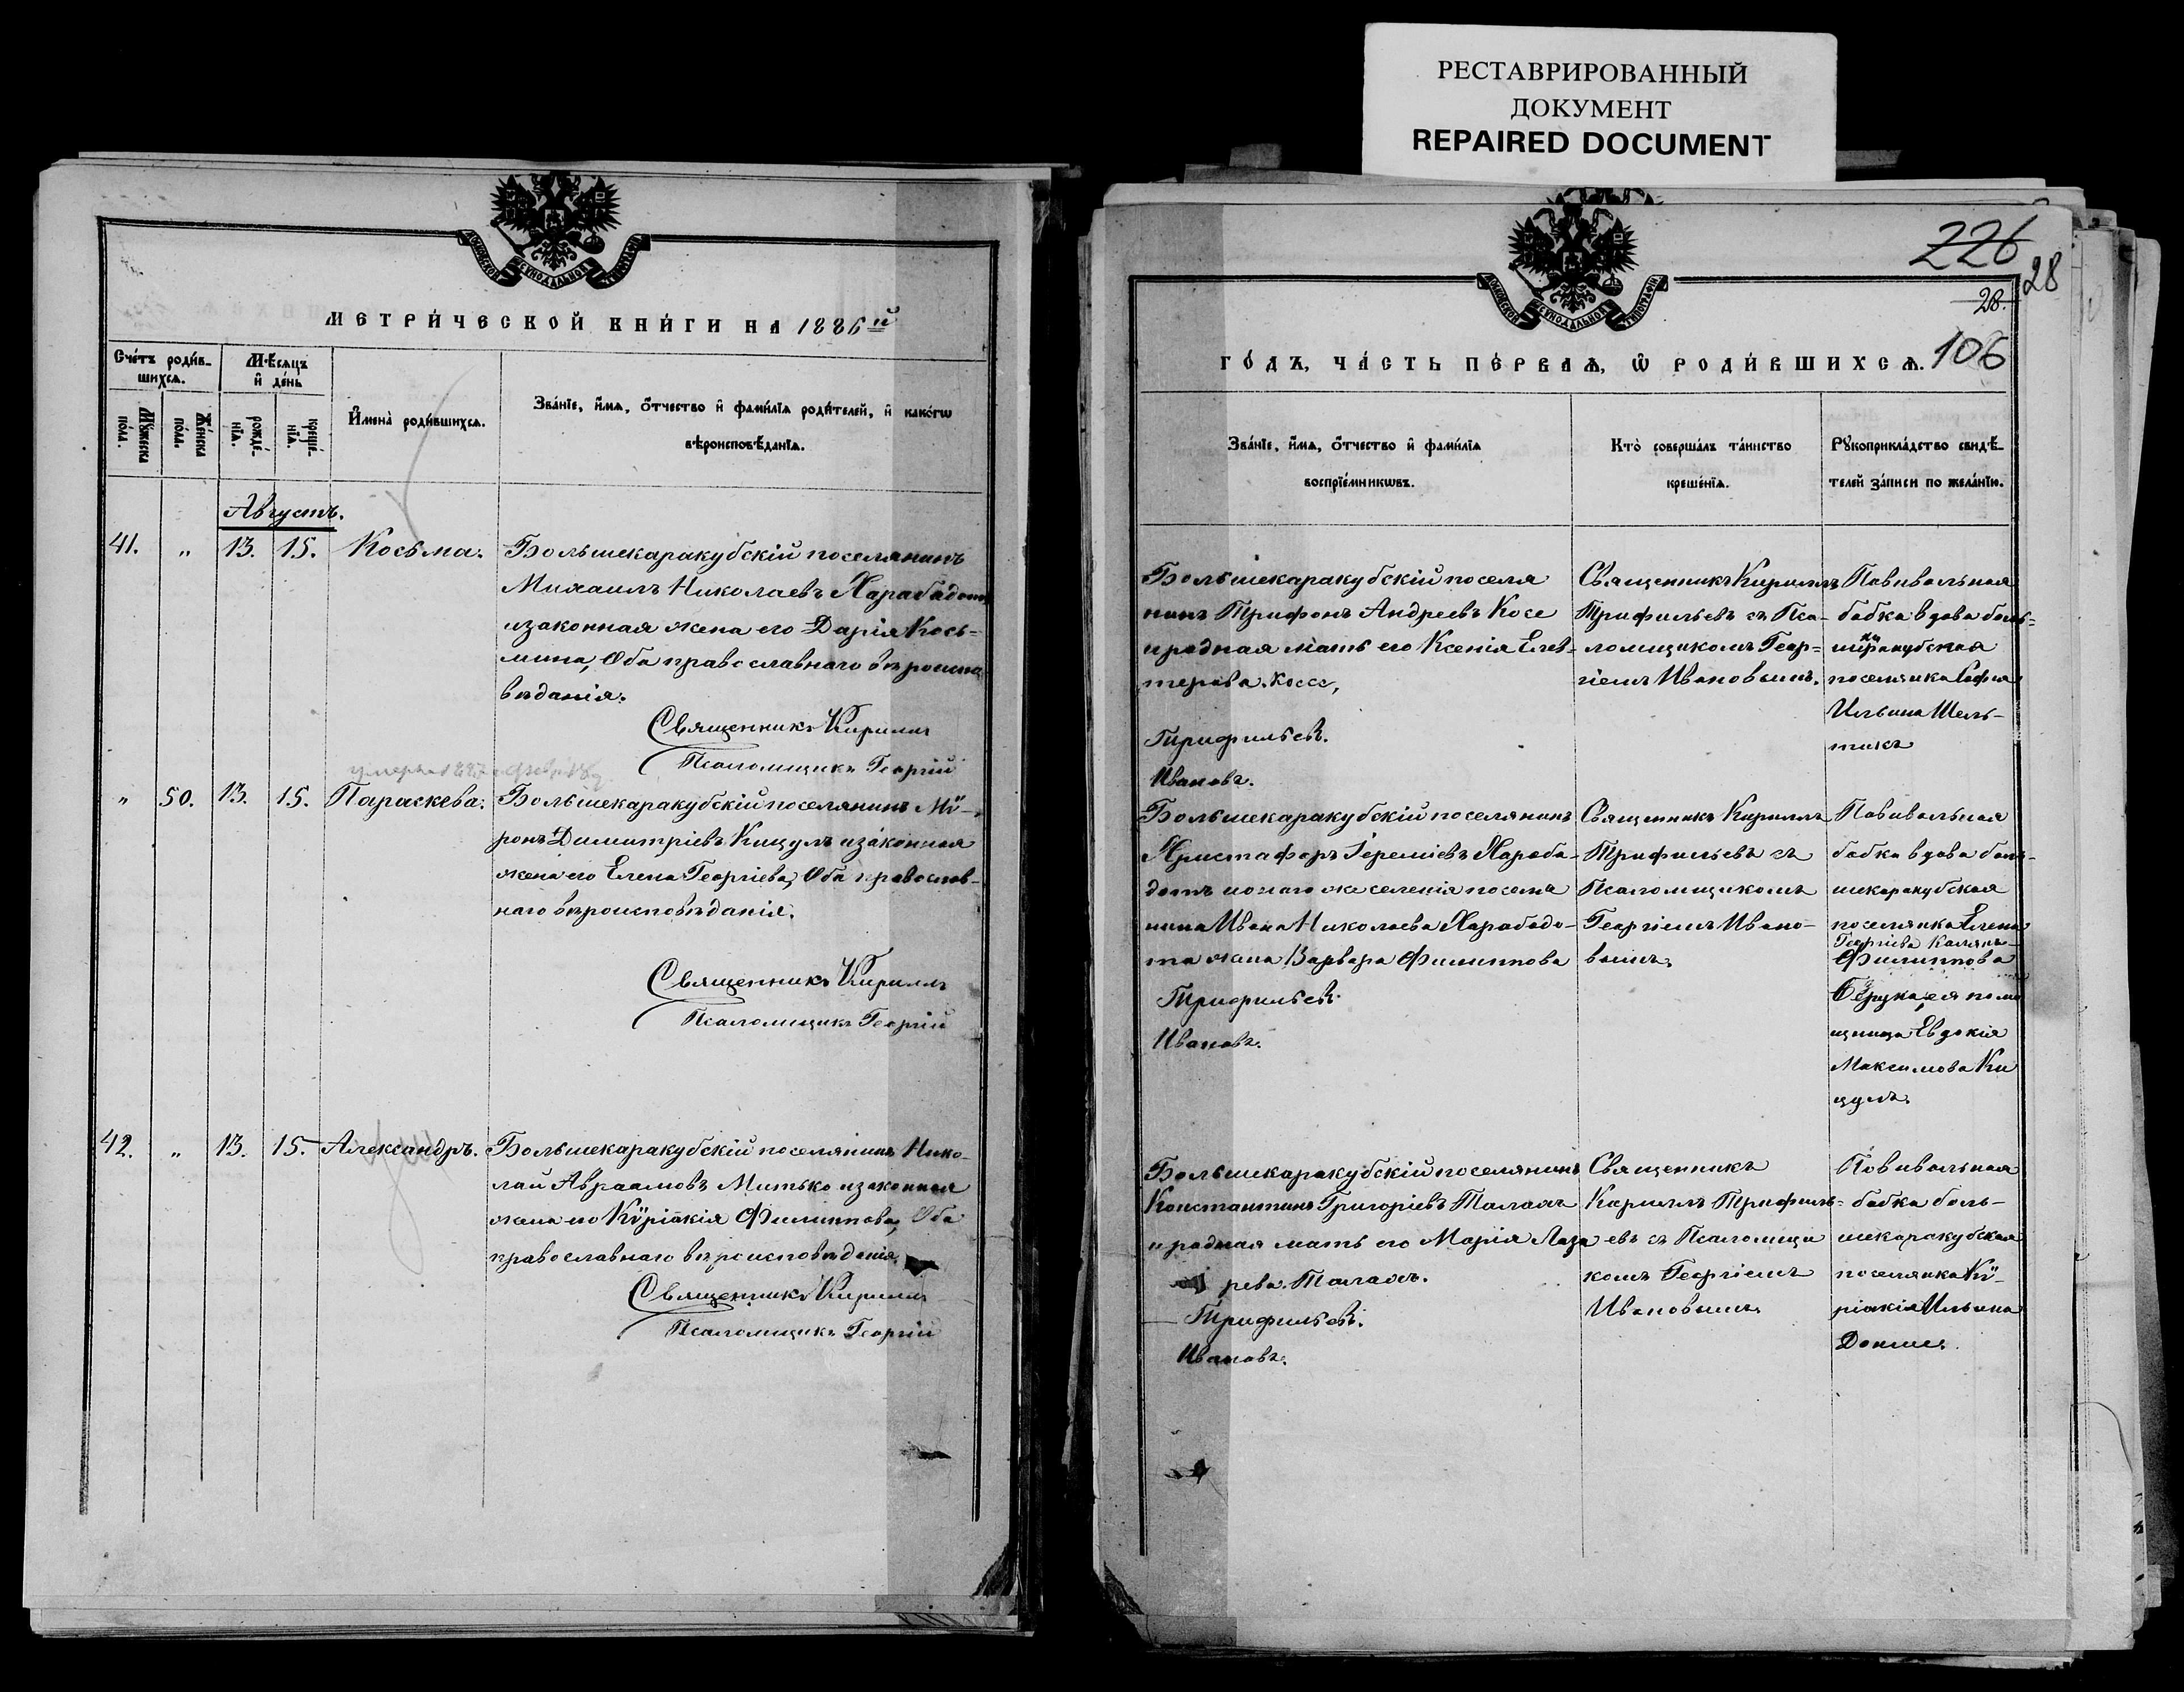 РЕСТАВРИРОВАННЫЙ
ДОКУМЕНТ
REPAIRED DOCUMENT
МОСКОВСКОЙ СѴНОДАЛЬНОЙ ТИПОГРАФІИ
МЕТРИ́ЧЕСКОЙ КНИ́ГИ НА 1886й
Сче́тъ роди́в-
шихсѧ.
Мѣ́сѧцъ
и҆ де́нь
Мꙋ́жеска
по́ла.
Же́нска
по́ла.
рожде́-
нїѧ.
креще́-
нїѧ.
И҆мена̀ роди́вшихсѧ.
Зва́нїе, и҆́мѧ, ѻ҆́тчество и҆ фамі́лїѧ роди́телей, и҆ како́гѡ
вѣроисповѣ́данїѧ.
Августъ.
41. " 13. 15. Косьма.
Большекаракубскій поселянинъ
Михаилъ Николаевъ Харабадотъ
и законная жена его Дарія Кось-
мина, Оба православнаго вѣроиспо
вѣданія.
Священникъ Кириллъ
Псаломщикъ Георгій
умерла 1887
" 50. 13. 15. Параскева.
Большекаракубскій поселянинъ Мѵ-
ронъ Димитріевъ Кицулъ и законная
жена его Елена Георгіева, Оба православ-
наго вѣроисповѣданія.
Священникъ Кириллъ
Псаломщикъ Георгій
42. " 13. 15. Александръ.
Большекаракубскій поселянинъ Нико-
лай Авраамовъ Митько и законная
жена его Кѵріакія Филиппова, Оба
православнаго вѣроисповѣданія.
Священникъ Кириллъ
Псаломщикъ Георгій
МОСКОВСКОЙ СѴНОДАЛЬНОЙ ТИПОГРАФІИ
226
28
28.
106
ГО́ДЪ, ЧА́СТЬ ПЕ́РВАѦ, Ѡ҆ РОДИ́ВШИХСѦ.
Зва́нїе, и҆́мѧ, ѻ҆́тчество и҆ фамі́лїѧ
воспрїе́мникѡвъ.
Кто̀ соверша́лъ та́инство
креще́нїѧ.
Рꙋкоприкла́дство свидѣ́-
телей за́писи по жела́нїю.
Большекаракубскій поселя
нинъ Трифонъ Андреевъ Косе
и родная мать его Ксенія Елев-
терова. Косе,
Трифильевъ.
Ивановъ.
Священникъ Кириллъ
Трифильевъ съ Пса-
ломщикомъ Геор-
гіемъ Ивановымъ.
Повивальная
бабка вдова боль-
поселянка Софія
Ильина Шель-
Большекаракубскій поселянинъ
Христофоръ Іереміевъ Хараба-
дотъ и онаго же селенія поселя
нина Ивана Николаева Харабадо-
та жена Варвара Филиппова
Трифильевъ.
Ивановъ.
Священникъ Кириллъ
Трифильевъ съ
Псаломщикомъ
Георгіемъ Ивано-
вымъ.
Повивальная
бабка вдова боль-
шекаракубская
поселянка Елена
Георгіева
Филиппова
ея помо
щница Евдокія
Максимова Ки
цулъ.
Большекаракубскій поселянинъ
Константинъ Григоріевъ Талахъ
и родная мать его Марія Лаза
рева. Талахъ.
Трифильевъ.
Ивановъ.
Священникъ
Кириллъ Трифиль-
евъ съ Псаломщи
комъ Георгіемъ
Ивановымъ.
Повивальная
бабка боль-
шекаракубская
поселянка Кѵ-
ріакія Ильина